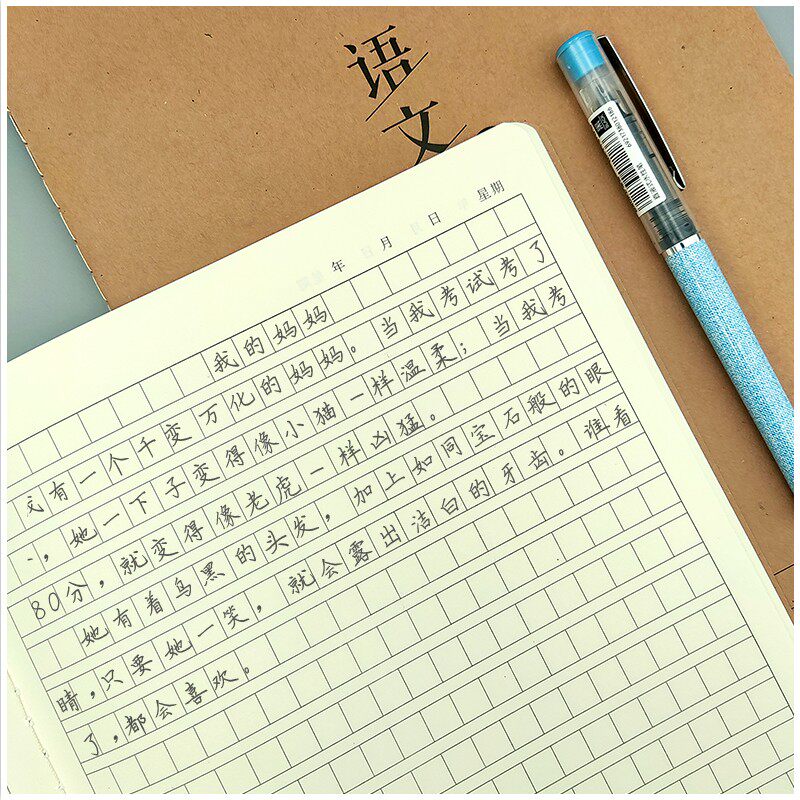 语文
年 月 日 星期
我的妈妈
我有一个千变万化的妈妈。当我考试考了
，她一下子变得像小猫一样温柔；当我考
80分，就变得像老虎一样凶猛。
她有着乌黑的头发，加上如同宝石般的眼
睛，只要她一笑，就会露出洁白的牙齿。谁看
了，都会喜欢。